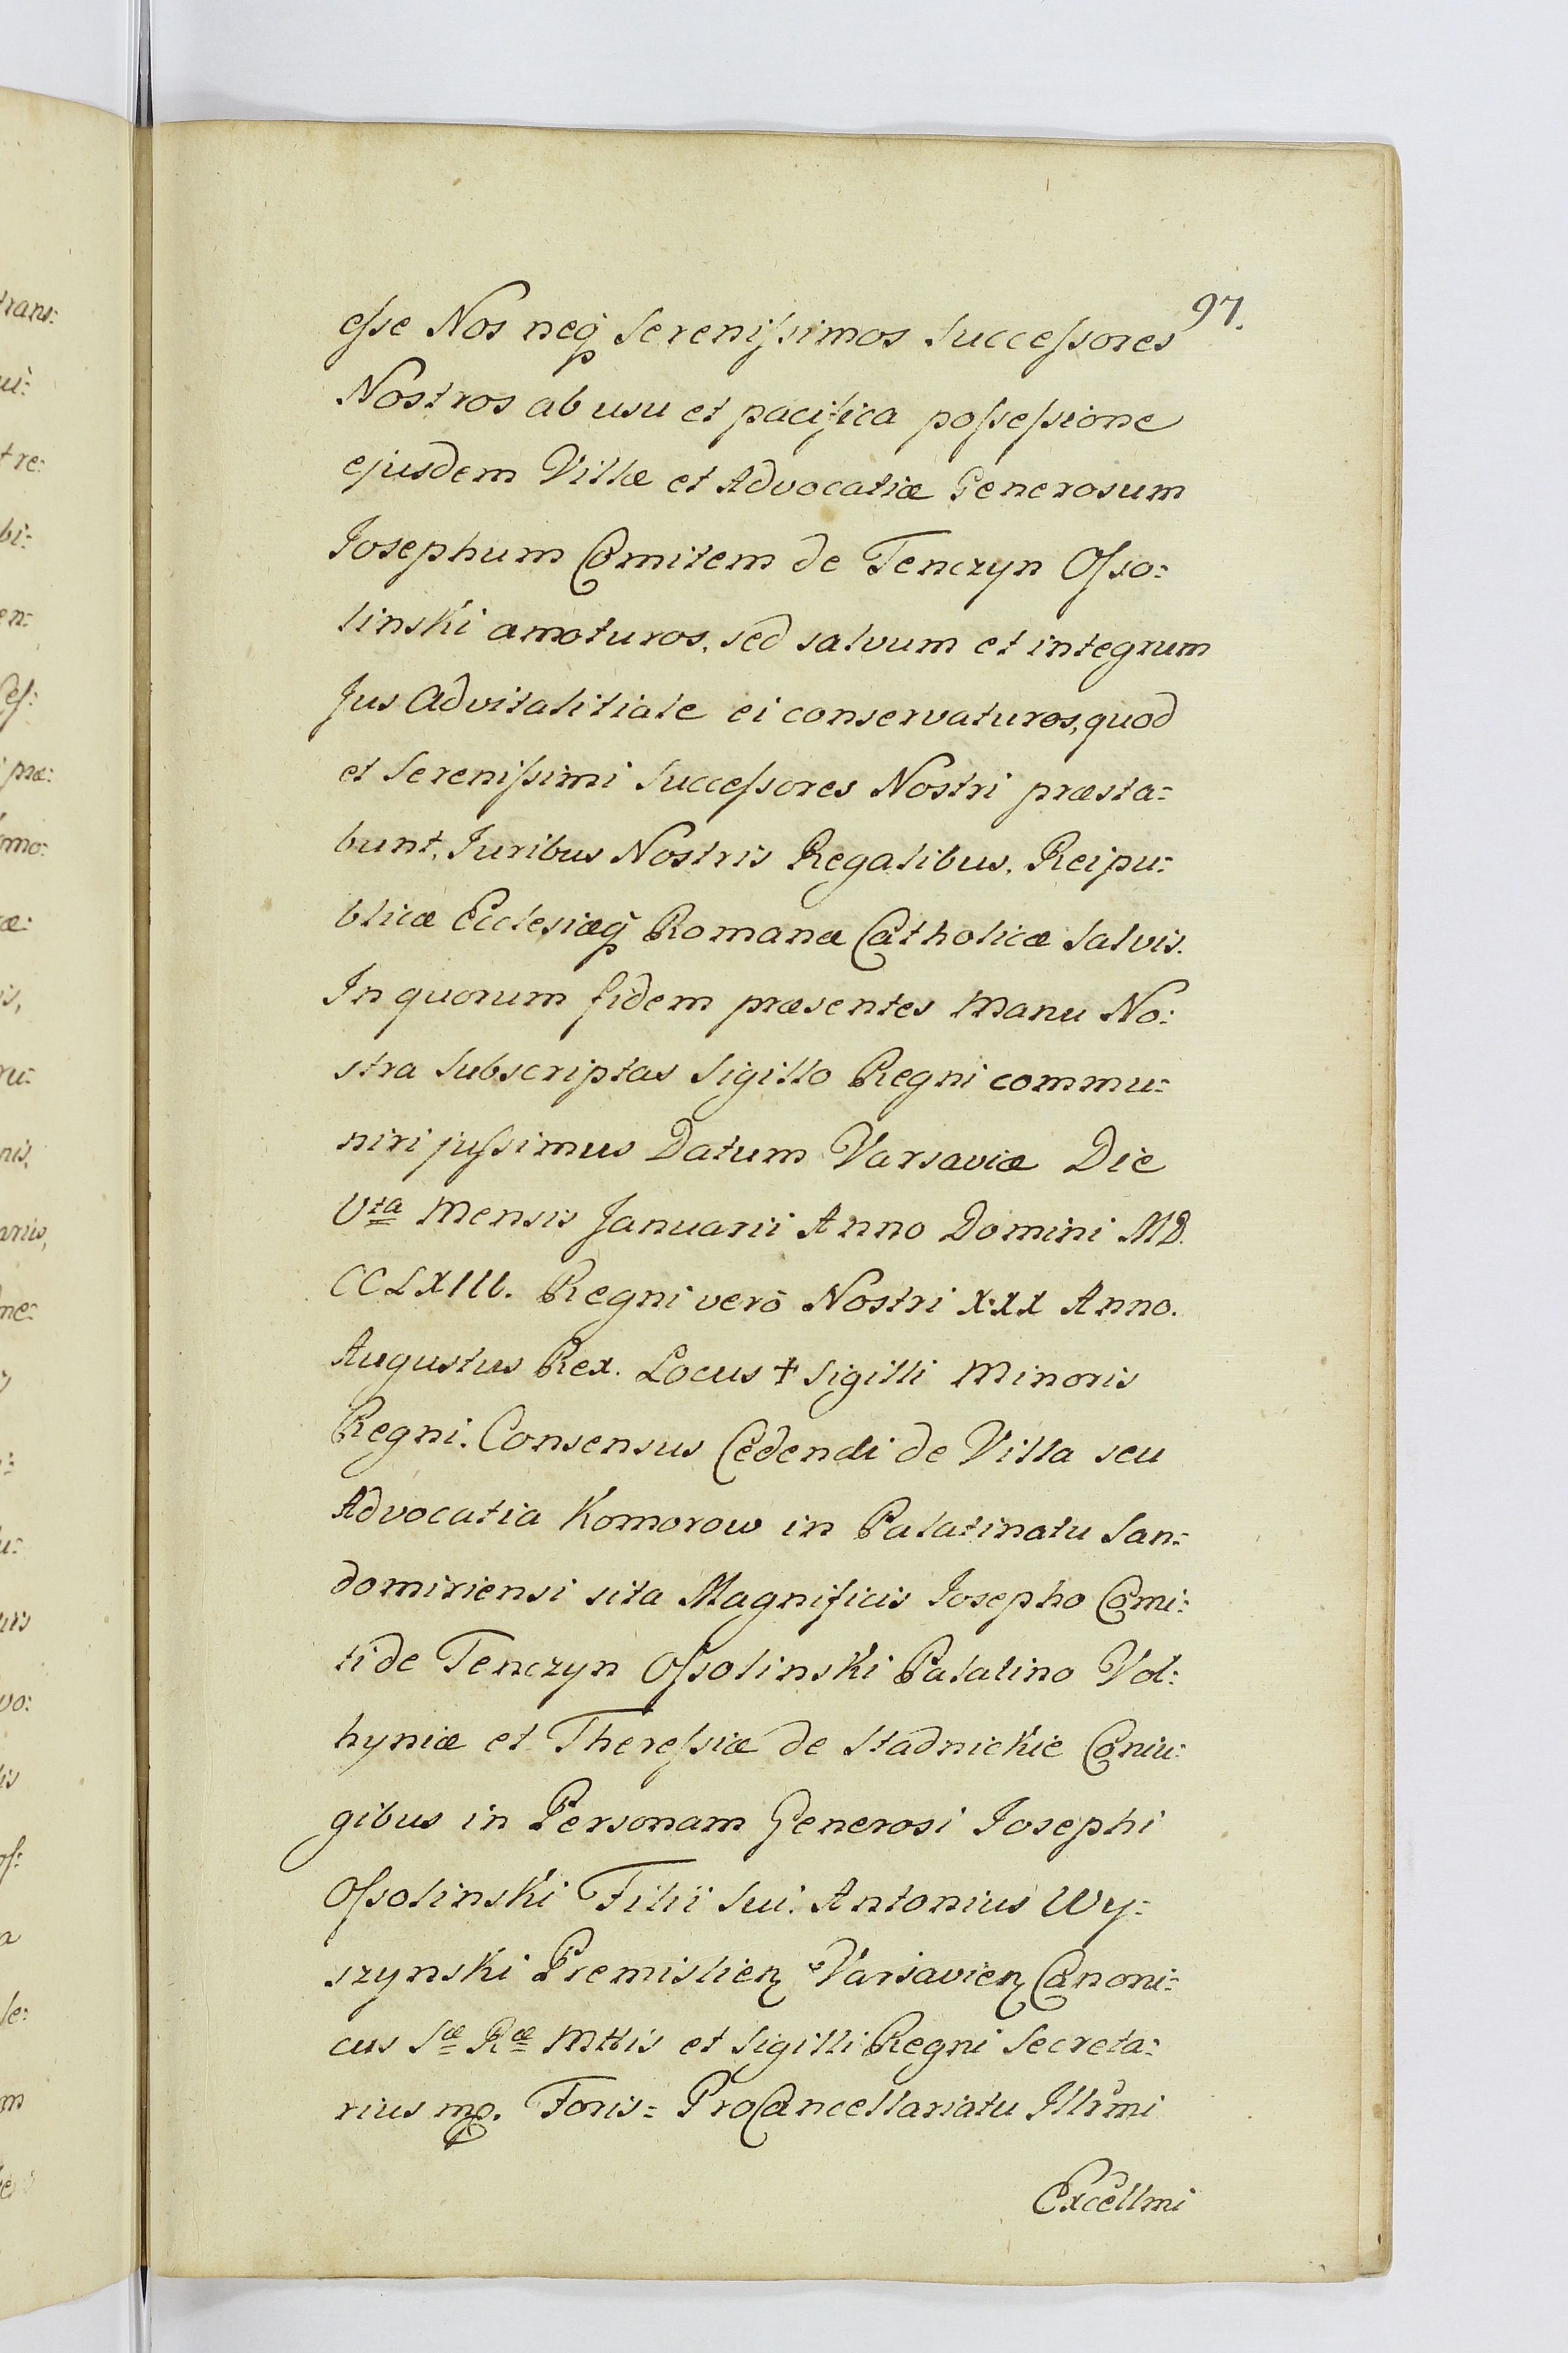 97.
eſse Nos neq̃ Sereniſsimos Succeſsores
Nostros ab usu et pacifica poſseſsione
ejusdem Villæ et Advocatiæ Generosum
Josephum Comitem de Tenczyn Oſso:
linski amoturos, sed salvum et integrum
Jus Advitalitiale ei conservaturos, quod
et Sereniſsimi Succeſsores Nostri præsta:
bunt, Juribus Nostris Regalibus, Reipu:
blicæ Ecclesiæq̃ Romanæ Catholicæ Salvis.
In quorum fidem præsentes Manu No:
stra Subscriptas Sigillo Regni commu:
niri juſsimus Datum Varsaviæ Die
Vta Mensis Januarii Anno Domini MD.
CCLXIII. Regni verò Nostri XXX Anno.
Augustus Rex. Locus + Sigilli Minoris
Regni. Consensus Cedendi de Villa seu
Advocatia Komorow in Palatinatu San:
domiriensi sita Magnificis Josepho Comi:
ti de Tenczyn Oſsolinski Palatino Vol:
hyniæ et Thereſsiæ de Stadnickie Coniu:
gibus in Personam Generosi Josephi
Oſsolinski Filii Sui. Antonius Wy:
szynski Premislien Varsavien Canoni:
cus Sæ Ræ Mttis et Sigilli Regni Secreta:
rius mp. Foris: ProCancellariatu Illrmi
Excellmi
trans:
ui:
tre:
bi:
en:
ceſ:
præ:
mo:
æ:
is,
ru:
nis,
arius,
me:
uris
vo:
lis
oſ:
a
le:
m